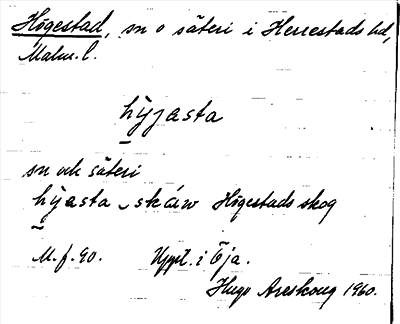 Högestad, sn o säteri i Herrestads hd,
Malm. l.
hỳjasta
sn och säteri
hỳjasta ‿skáw Högestads skog
M. f. 90. Uppt. i Öja.
Hugo Areskoug 1960.